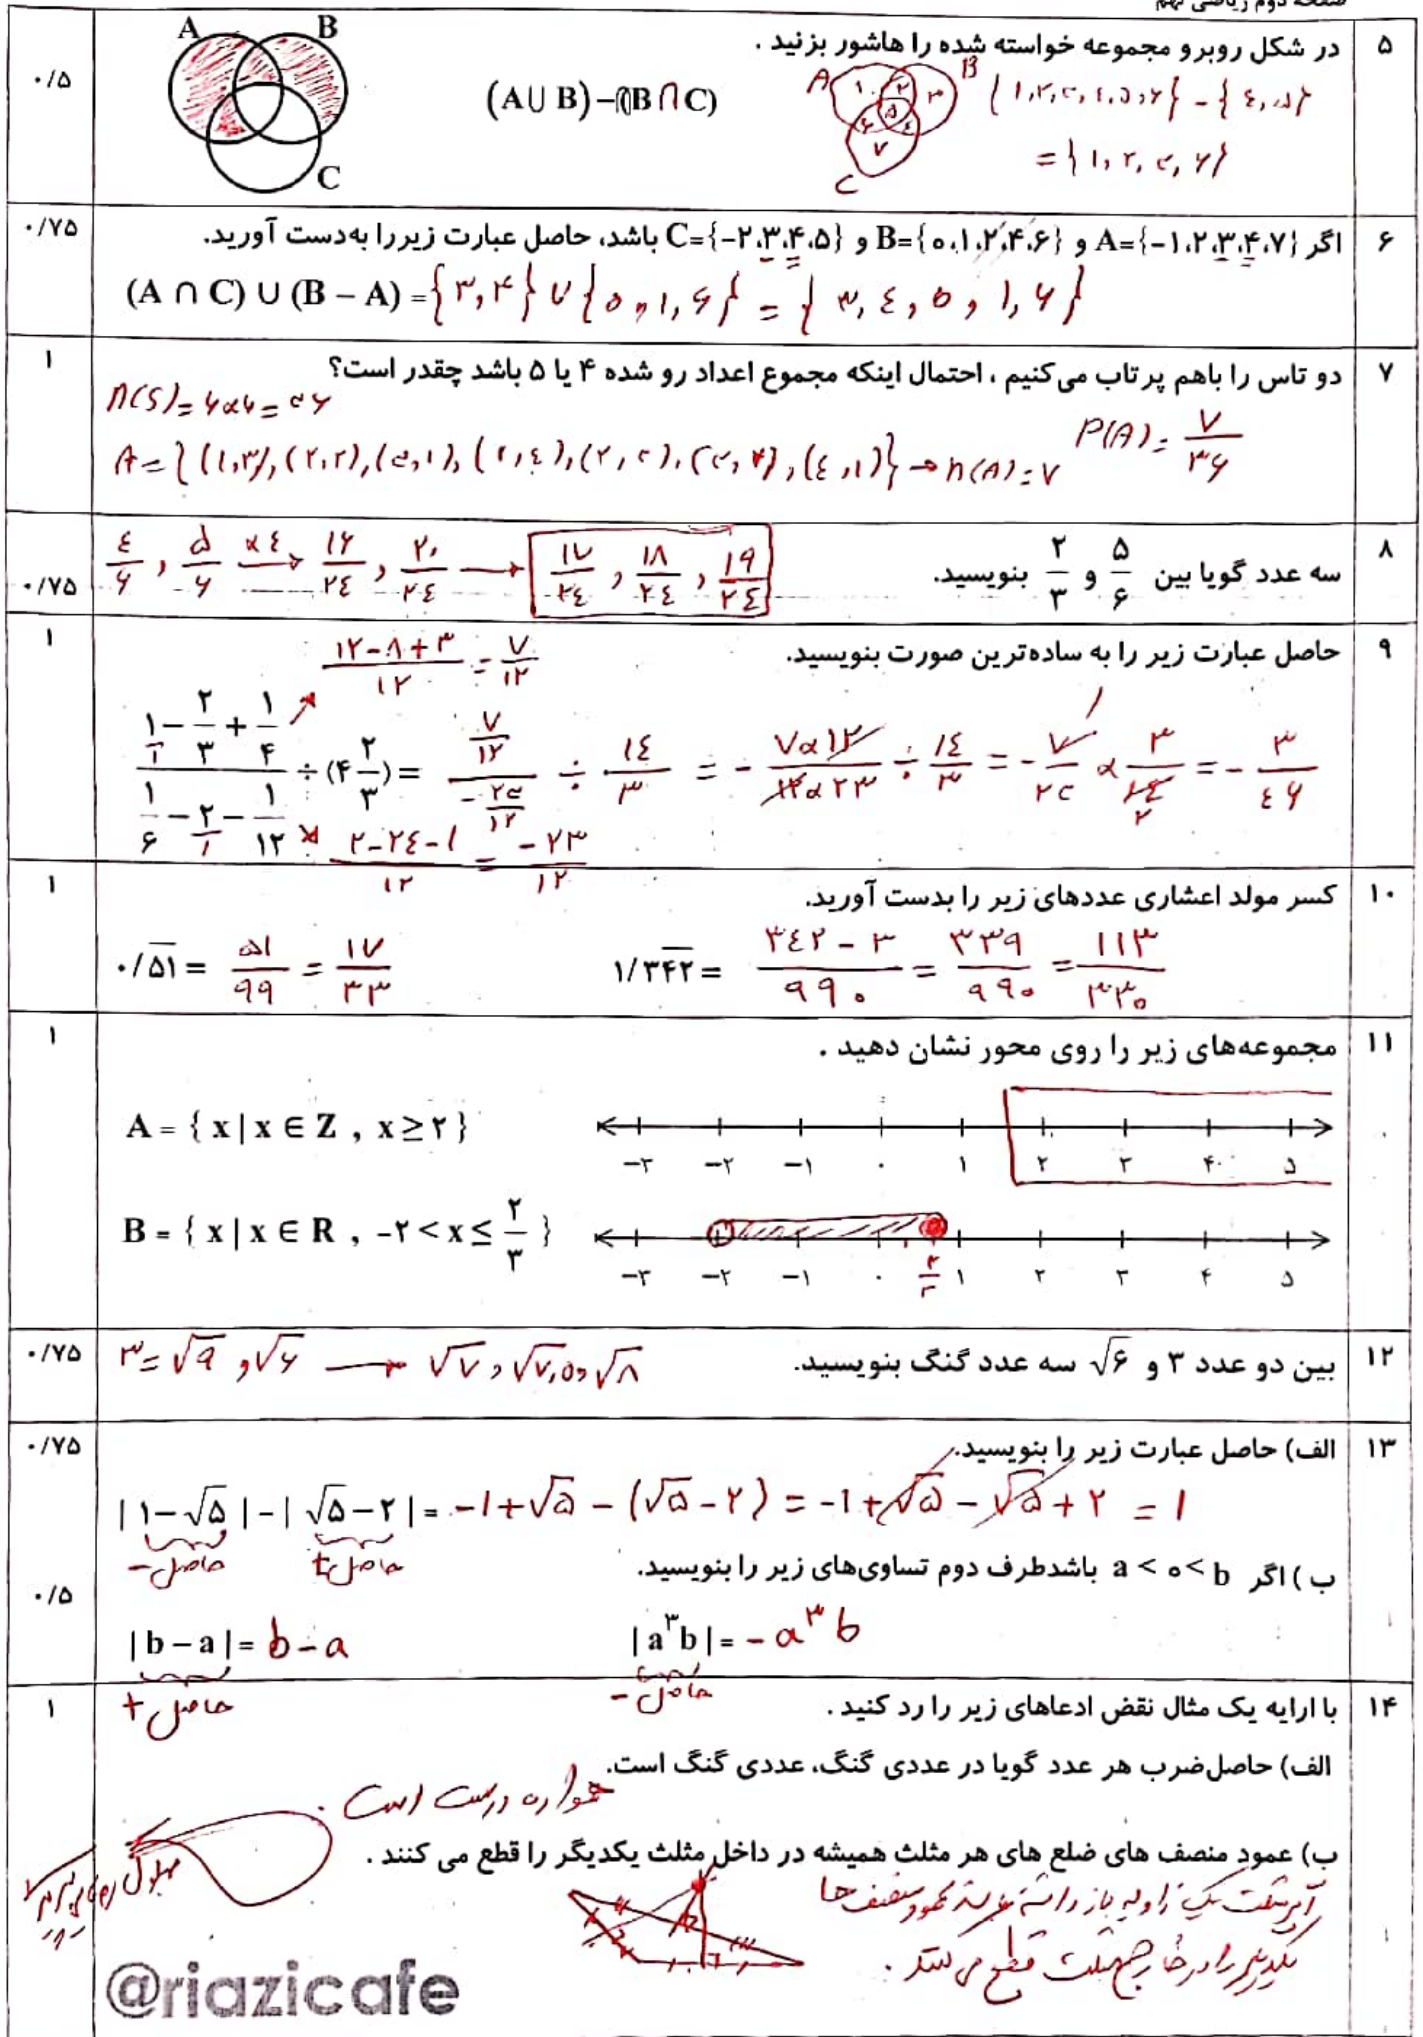 صفحه دوم ریاضی نهم
۵ در شکل روبرو مجموعه خواسته شده را هاشور بزنید . ۰/۵
A B C
(A∪B)−(B∩C)
A B C ۱ ۲ ۳ ۴ ۵ ۶ ۷
{۱,۲,۳,۴,۵,۶} − {۴,۵}
= {۱,۲,۳,۶}
۶ اگر A={−۱،۲،۳،۴،۷} و B={۰،۱،۲،۴،۶} و C={−۲،۳،۴،۵} باشد، حاصل عبارت زیررا به‌دست آورید. ۰/۷۵
(A ∩ C) ∪ (B − A) = {۳,۴} ∪ {۰,۱,۶} = {۳,۴,۰,۱,۶}
۷ دو تاس را باهم پرتاب می‌کنیم ، احتمال اینکه مجموع اعداد رو شده ۴ یا ۵ باشد چقدر است؟ ۱
n(S)=۶×۶=۳۶
A={(۱,۳),(۲,۲),(۳,۱),(۱,۴),(۲,۳),(۳,۲),(۴,۱)} → n(A)=۷ P(A)=۷/۳۶
۸ سه عدد گویا بین ۵/۶ و ۲/۳ بنویسید. ۰/۷۵
۴/۶ , ۵/۶ ×۴→ ۱۶/۲۴ , ۲۰/۲۴ → ۱۷/۲۴ , ۱۸/۲۴ , ۱۹/۲۴
۹ حاصل عبارت زیر را به ساده‌ترین صورت بنویسید. ۱
(۱۲−۸+۳)/۱۲ = ۷/۱۲
(۱/۱ − ۲/۳ + ۱/۴)/(۱/۶ − ۲/۱ − ۱/۱۲) ÷ (۴ ۲/۳) = (۷/۱۲)/(−۲۳/۱۲) ÷ ۱۴/۳ = − (۷×۱۲)/(۱۲×۲۳) ÷ ۱۴/۳ = − ۷/۲۳ × ۳/۱۴ = − ۳/۴۶
۱
۲
(۲−۲۴−۱)/۱۲ = −۲۳/۱۲
۱۰ کسر مولد اعشاری عددهای زیر را بدست آورید. ۱
۰/۵۱ = ۵۱/۹۹ = ۱۷/۳۳
۱/۳۴۲ = (۳۴۲−۳)/۹۹۰ = ۳۳۹/۹۹۰ = ۱۱۳/۳۳۰
۱۱ مجموعه‌های زیر را روی محور نشان دهید . ۱
A = { x | x ∈ Z , x ≥ ۲ }
−۳ −۲ −۱ ۰ ۱ ۲ ۳ ۴ ۵
B = { x | x ∈ R , −۲ < x ≤ ۲/۳ }
−۳ −۲ −۱ ۰ ۲/۳ ۱ ۲ ۳ ۴ ۵
۱۲ بین دو عدد ۳ و √۶ سه عدد گنگ بنویسید. ۰/۷۵
۳=√۹ , √۶ → √۷ , √۷٫۵ , √۸
۱۳ الف) حاصل عبارت زیر را بنویسید. ۰/۷۵
|۱−√۵|−|√۵−۲| = −۱+√۵ − (√۵−۲) = −۱+√۵−√۵+۲ = ۱
حاصل − حاصل +
ب ) اگر a < ۰ < b باشدطرف دوم تساوی‌های زیر را بنویسید. ۰/۵
|b − a| = b − a |a³b| = −a³b
حاصل + حاصل −
۱۴ با ارایه یک مثال نقض ادعاهای زیر را رد کنید . ۱
الف) حاصل‌ضرب هر عدد گویا در عددی گنگ، عددی گنگ است.
همواره درست است .
ب) عمود منصف های ضلع های هر مثلث همیشه در داخل مثلث یکدیگر را قطع می کنند .
اگر مثلث یک زاویه باز داشته باشد عمود منصف ها
یکدیگر را در خارج مثلث قطع می کنند .
@riazicafe